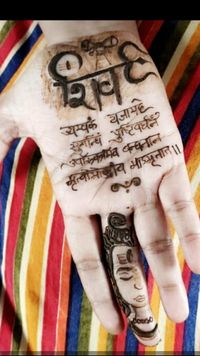 शिव
त्र्यम्बकं यजामहे
सुगन्धिं पुष्टिवर्धनं
उर्वारुकमिव बन्धनान
मृत्योर्मुक्षीय मामृतात ॥